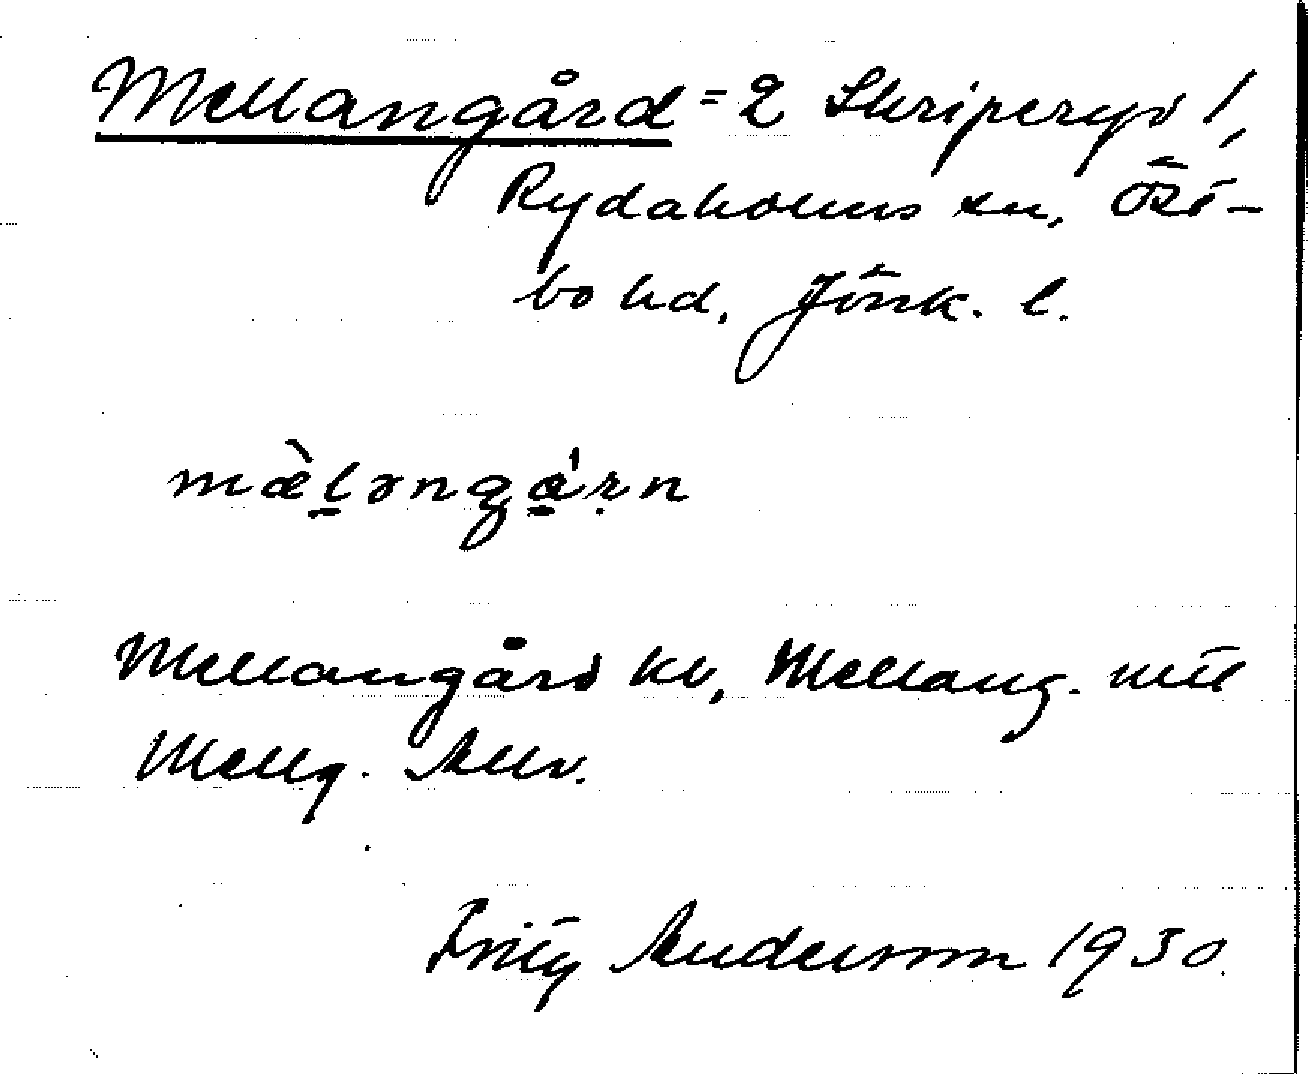 Mellangård = 2 Skriperyd 1,
Rydaholms sn, Öst-
bo hd, Jönk. l.
mæ̀lǝngá̠ṛn
Mellangård kv, Mellang. mtl
Mellg. Allv.
Fritz Anderson 1930.